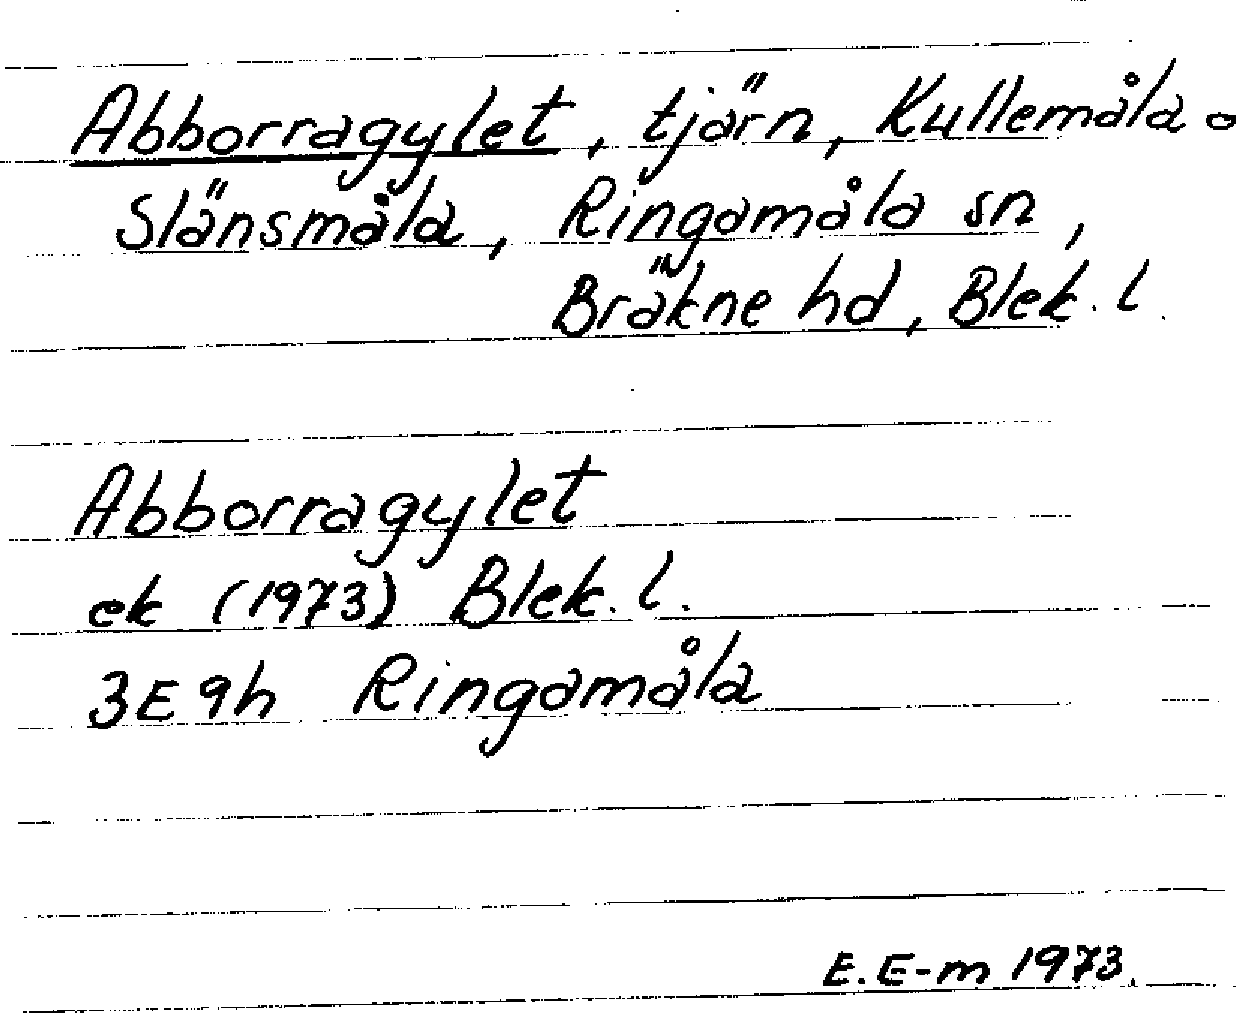 Abborragylet, tjärn, Kullemåla o
Slänsmåla, Ringamåla sn,
Bräkne hd, Blek. l.
Abborragylet
ek (1973) Blek. l.
3E9h Ringamåla
E. E-m 1973.